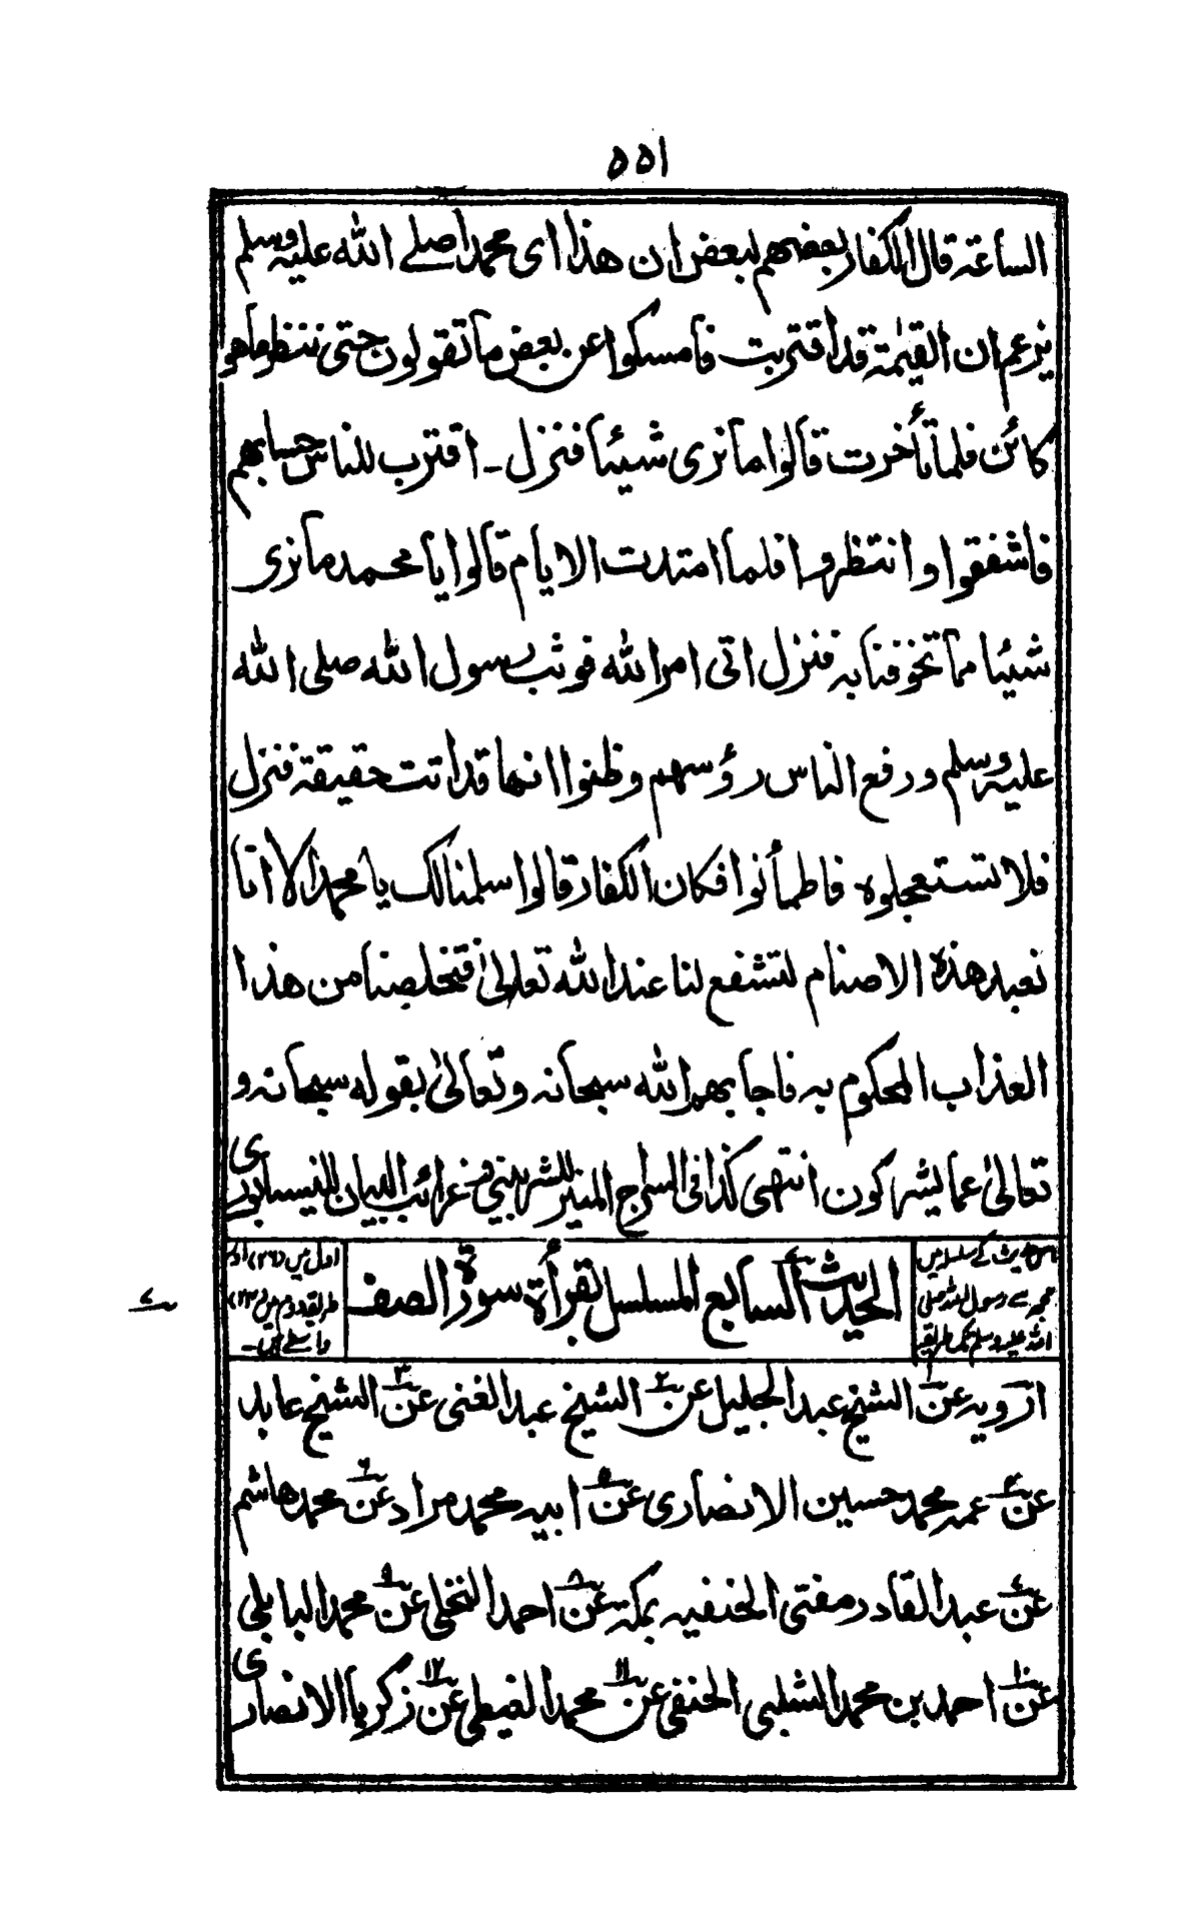 ٥٥١
الساعة قال الكفار بعضهم لبعض ان هذا اى محمدا صلے الله عليه وسلم
يزعم ان القيٰمة قد اقتربت فامسكوا عن بعض ما تقولون حتى ننظر ما هو
كائن فلما تأخرت قالوا ما نرى شيئا فنزل ـ اقترب للناس حسابهم
فاشفقوا وانتظروا فلما امتدت الايام قالوا يا محمد ما نرى
شيئا مما تخوفنا به فنزل اتى امر الله فوثب رسول الله صلى الله
عليه وسلم ورفع الناس رؤسهم وظنوا انها قد اتت حقيقة فنزل
فلا تستعجلوه فاطمأنوا فكان الكفار قالوا سلمنا لك يا محمد الا انا
نعبد هذه الاصنام لتشفع لنا عند الله تعالىٰ فتخلصنا من هذا
العذاب المحكوم به فاجابهم الله سبحانه وتعالىٰ بقوله سبحانه و
تعالىٰ عما يشركون انتهى كذا فى السراج المنير للشربينى وغرائب البيان للنيسابورى
اس حدیث کے سلسلہ میں
مجھ سے رسول اللہ صلی
اللہ علیہ وسلم تک طریقہ
الحديث السابع المسلسل بقرأة سورة الصف
اول میں (٢٦) اور
طریقہ دوم میں (٢٣)
واسطے ہیں۔
٧
ارويه عن١ الشيخ عبد الجليل عن٢ الشيخ عبد الغنى عن٣ الشيخ عابد
عن٤ عمه محمد حسين الانصارى عن٥ ابيه محمد مراد عن٦ محمد هاشم
عن٧ عبد القادر مفتى الحنفيه بمكة عن٨ احمد النخلى عن٩ محمد البابلى
عن١٠ احمد بن محمد الشلبى الحنفى عن١١ محمد الغيطى عن١٢ زكريا الانصارى